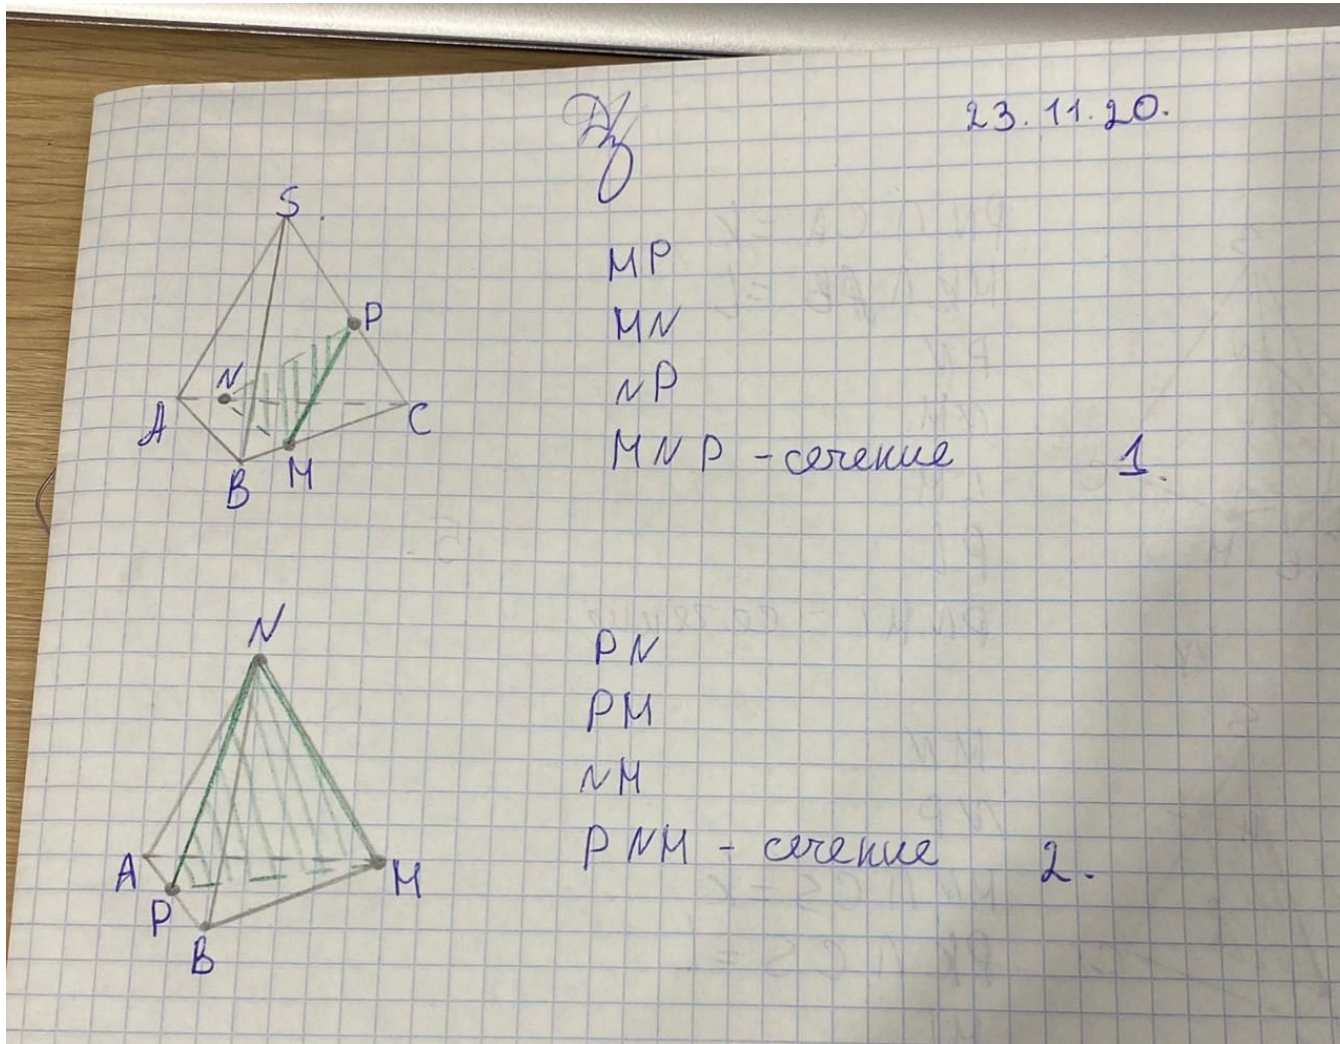 Д/з
23.11.20.
S
P
N
A
C
B
M
MP
MN
NP
MNP - сечение
1.
N
A
M
P
B
PN
PM
NM
PNM - сечение
2.